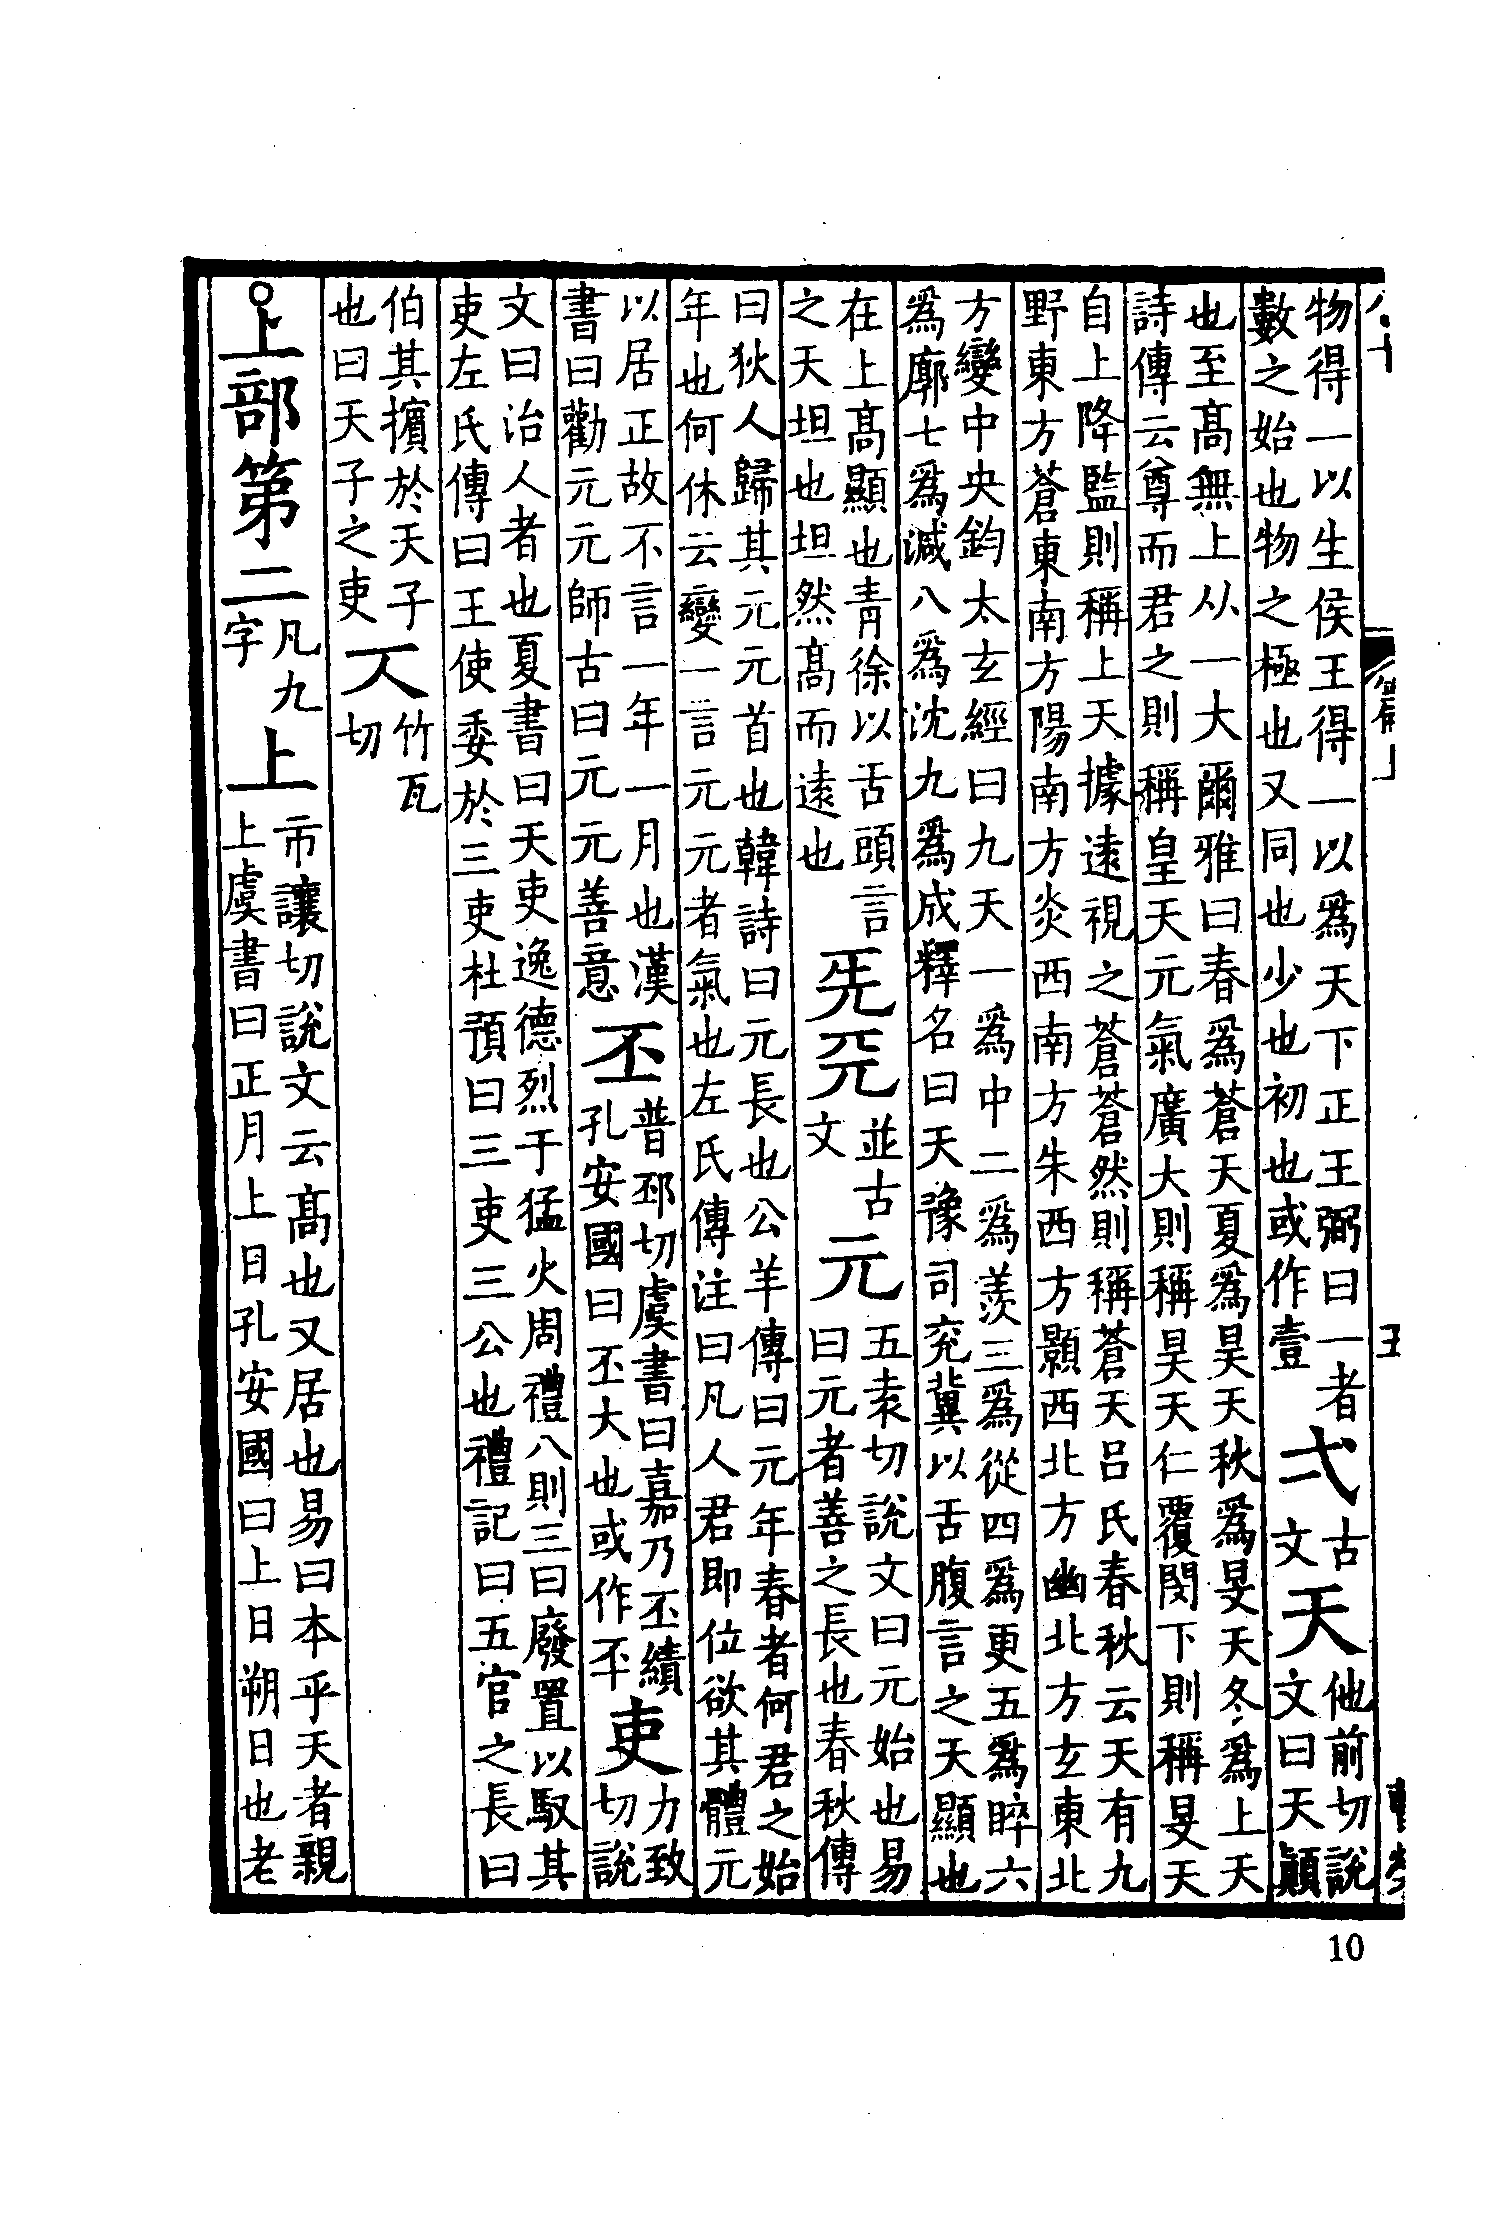 物得一以生侯王得一以爲天下正王弼曰一者
數之始也物之極也又同也少也初也或作壹
弌
古
文
天
他前切說
文曰天顚
也至髙無上从一大爾雅曰春爲蒼天夏爲昊天秋爲旻天冬爲上天
詩傳云尊而君之則稱皇天元氣廣大則稱昊天仁覆閔下則稱旻天
自上降監則稱上天據遠視之蒼蒼然則稱蒼天吕氏春秋云天有九
野東方蒼東南方陽南方炎西南方朱西方顥西北方幽北方玄東北
方變中央鈞太玄經曰九天一爲中二爲羨三爲從四爲更五爲睟六
爲廓七爲減八爲沈九爲成釋名曰天豫司兖冀以舌腹言之天顯也
在上髙顯也靑徐以舌頭言
之天坦也坦然髙而遠也
並古
文
元
五袁切說文曰元始也易
曰元者善之長也春秋傳
曰狄人歸其元元首也韓詩曰元長也公羊傳曰元年春者何君之始
年也何休云變一言元元者氣也左氏傳注曰凡人君即位欲其體元
以居正故不言一年一月也漢
書曰勸元元師古曰元元善意
丕
普邳切虞書曰嘉乃丕績
孔安國曰丕大也或作㔻
吏
力致
切說
文曰治人者也夏書曰天吏逸德烈于猛火周禮八則三曰廢置以馭其
吏左氏傳曰王使委於三吏杜預曰三吏三公也禮記曰五官之長曰
伯其擯於天子
也曰天子之吏
竹瓦
切
上部第二
凡九
字
上
市讓切說文云髙也又居也易曰本乎天者親
上虞書曰正月上日孔安國曰上日朔日也老
五
10